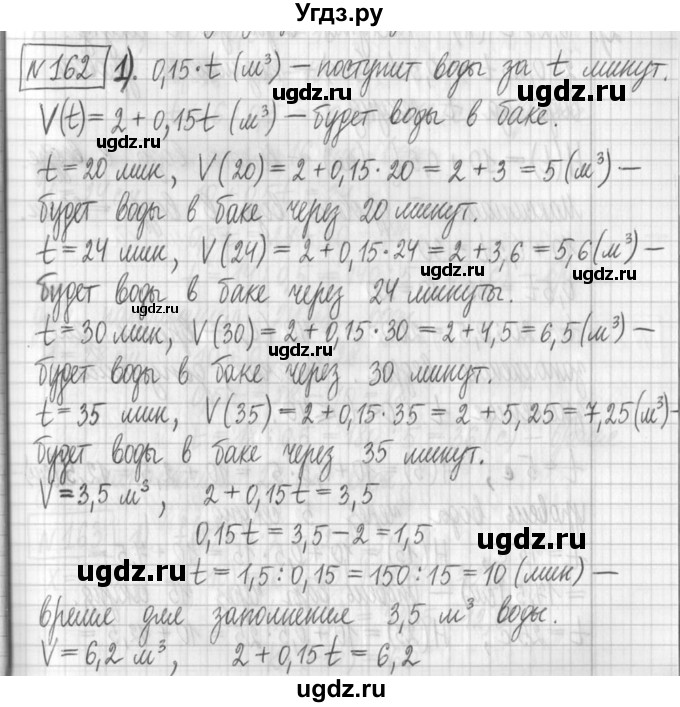 Угдз.ру
№162 (1). 0,15·t (м³) – поступит воды за t минут.
ugdz.ru ugdz.ru
V(t)=2+0,15t (м³) – будет воды в баке.
t=20 мин, V(20)=2+0,15·20=2+3=5(м³) –
будет воды в баке через 20 минут.
ugdz.ru
t=24 мин, V(24)=2+0,15·24=2+3,6=5,6(м³) –
ugdz.ru
будет воды в баке через 24 минуты.
ugdz.ru
t=30 мин, V(30)=2+0,15·30=2+4,5=6,5(м³) –
ugdz.ru
будет воды в баке через 30 минут.
t=35 мин, V(35)=2+0,15·35=2+5,25=7,25(м³) –
будет воды в баке через 35 минут.
V=3,5 м³, 2+0,15t=3,5
0,15t=3,5–2=1,5
ugdz.ru
ugdz.ru t=1,5:0,15=150:15=10 (мин) –
время для заполнения 3,5 м³ воды.
ugdz.ru
V=6,2 м³, 2+0,15t=6,2
ugdz.ru